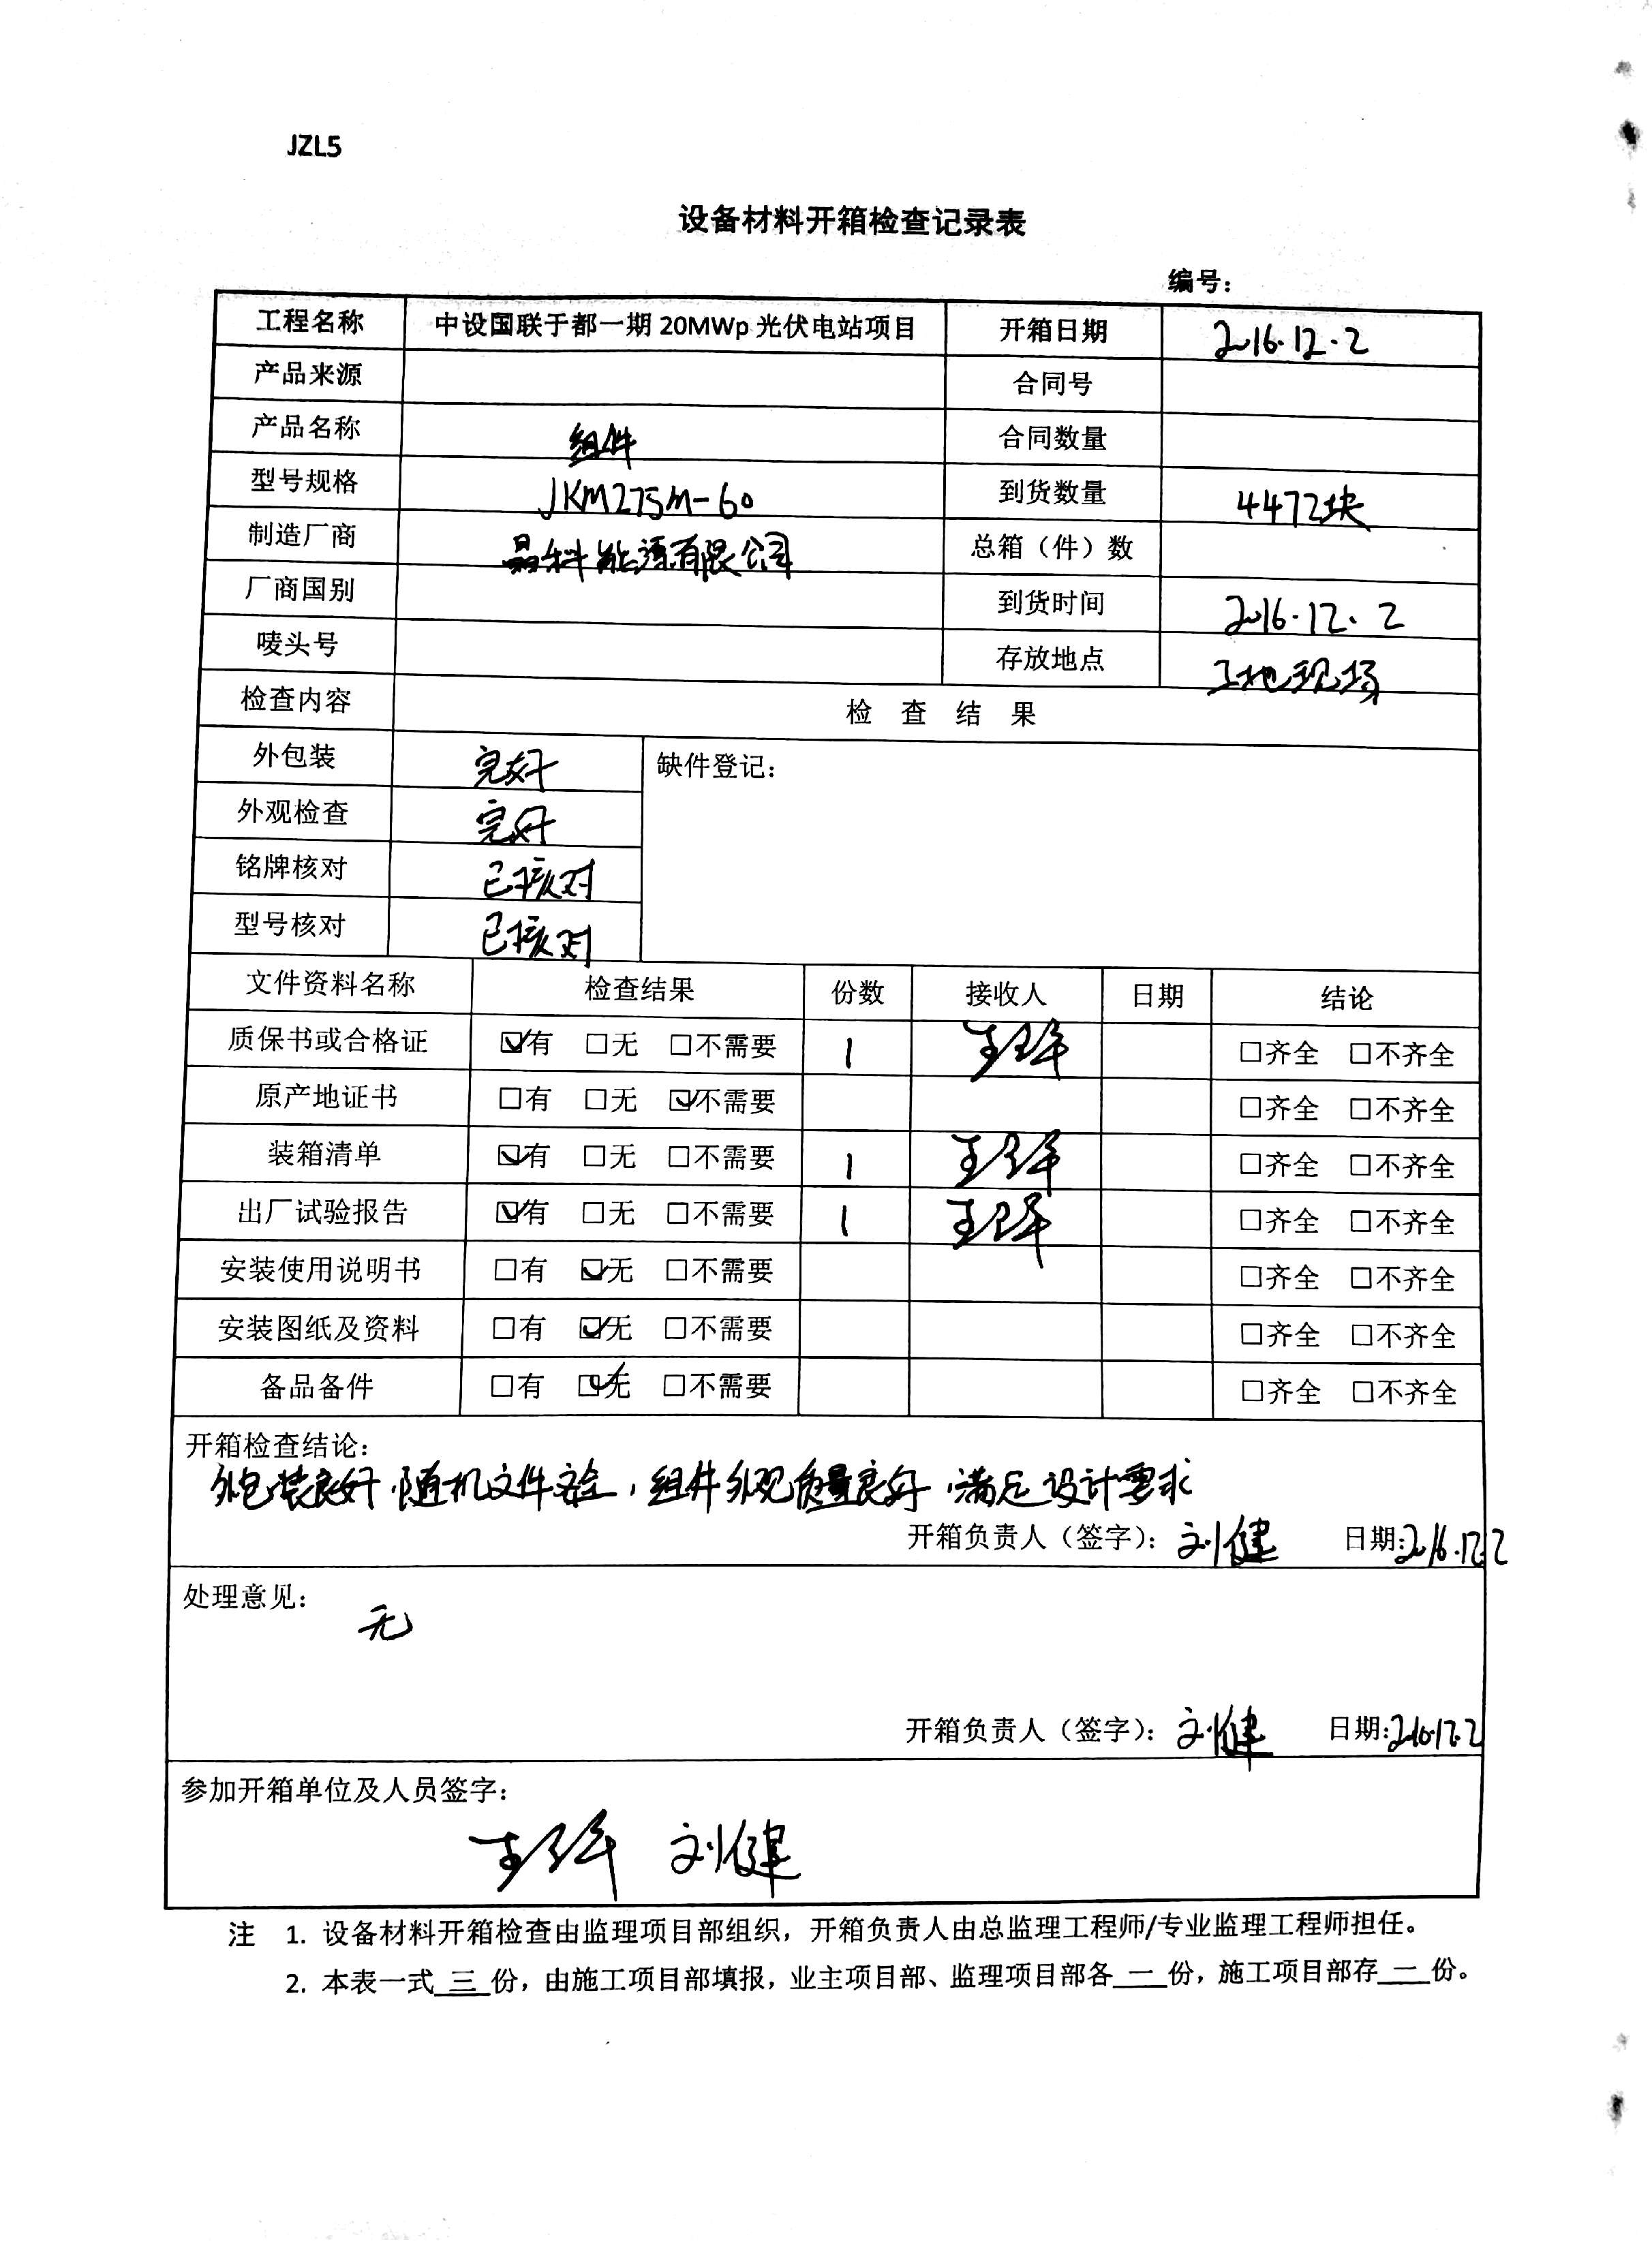 JZL5
设备材料开箱检查记录表
编号：
工程名称 中设国联于都一期 20MWp 光伏电站项目 开箱日期 2016.12.2
产品来源 合同号
产品名称 组件 合同数量
型号规格 JKM275M-60 到货数量 4472块
制造厂商 晶科能源有限公司 总箱（件）数
厂商国别 到货时间 2016.12.2
唛头号 存放地点 工地现场
检查内容 检 查 结 果
外包装 完好 缺件登记：
外观检查 完好
铭牌核对 已核对
型号核对 已核对
文件资料名称 检查结果 份数 接收人 日期 结论
质保书或合格证 ☑有 □无 □不需要 1 □齐全 □不齐全
原产地证书 □有 □无 ☑不需要 □齐全 □不齐全
装箱清单 ☑有 □无 □不需要 1 □齐全 □不齐全
出厂试验报告 ☑有 □无 □不需要 1 □齐全 □不齐全
安装使用说明书 □有 ☑无 □不需要 □齐全 □不齐全
安装图纸及资料 □有 ☑无 □不需要 □齐全 □不齐全
备品备件 □有 ☑无 □不需要 □齐全 □不齐全
开箱检查结论：
外包装良好，随机文件齐全，组件外观质量良好，满足设计要求
开箱负责人（签字）： 刘健 日期：2016.12.2
处理意见：
无
开箱负责人（签字）： 刘健 日期：2016.12.2
参加开箱单位及人员签字：
刘健
注 1. 设备材料开箱检查由监理项目部组织，开箱负责人由总监理工程师/专业监理工程师担任。
2. 本表一式 三 份，由施工项目部填报，业主项目部、监理项目部各 一 份，施工项目部存 一 份。